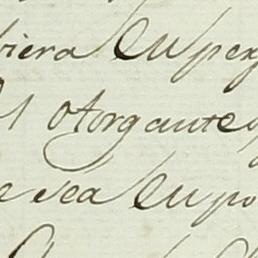 viera Eu pex
el otorgante
e sea Eu po